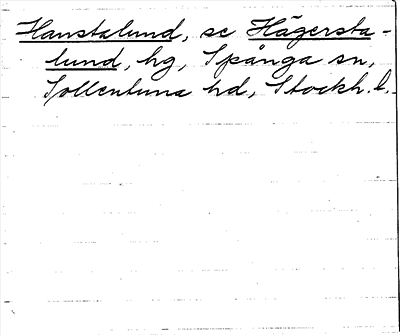 Hanstalund, se Hägersta-
lund, hg, Spånga sn,
Sollentuna hd, Stockh. l.